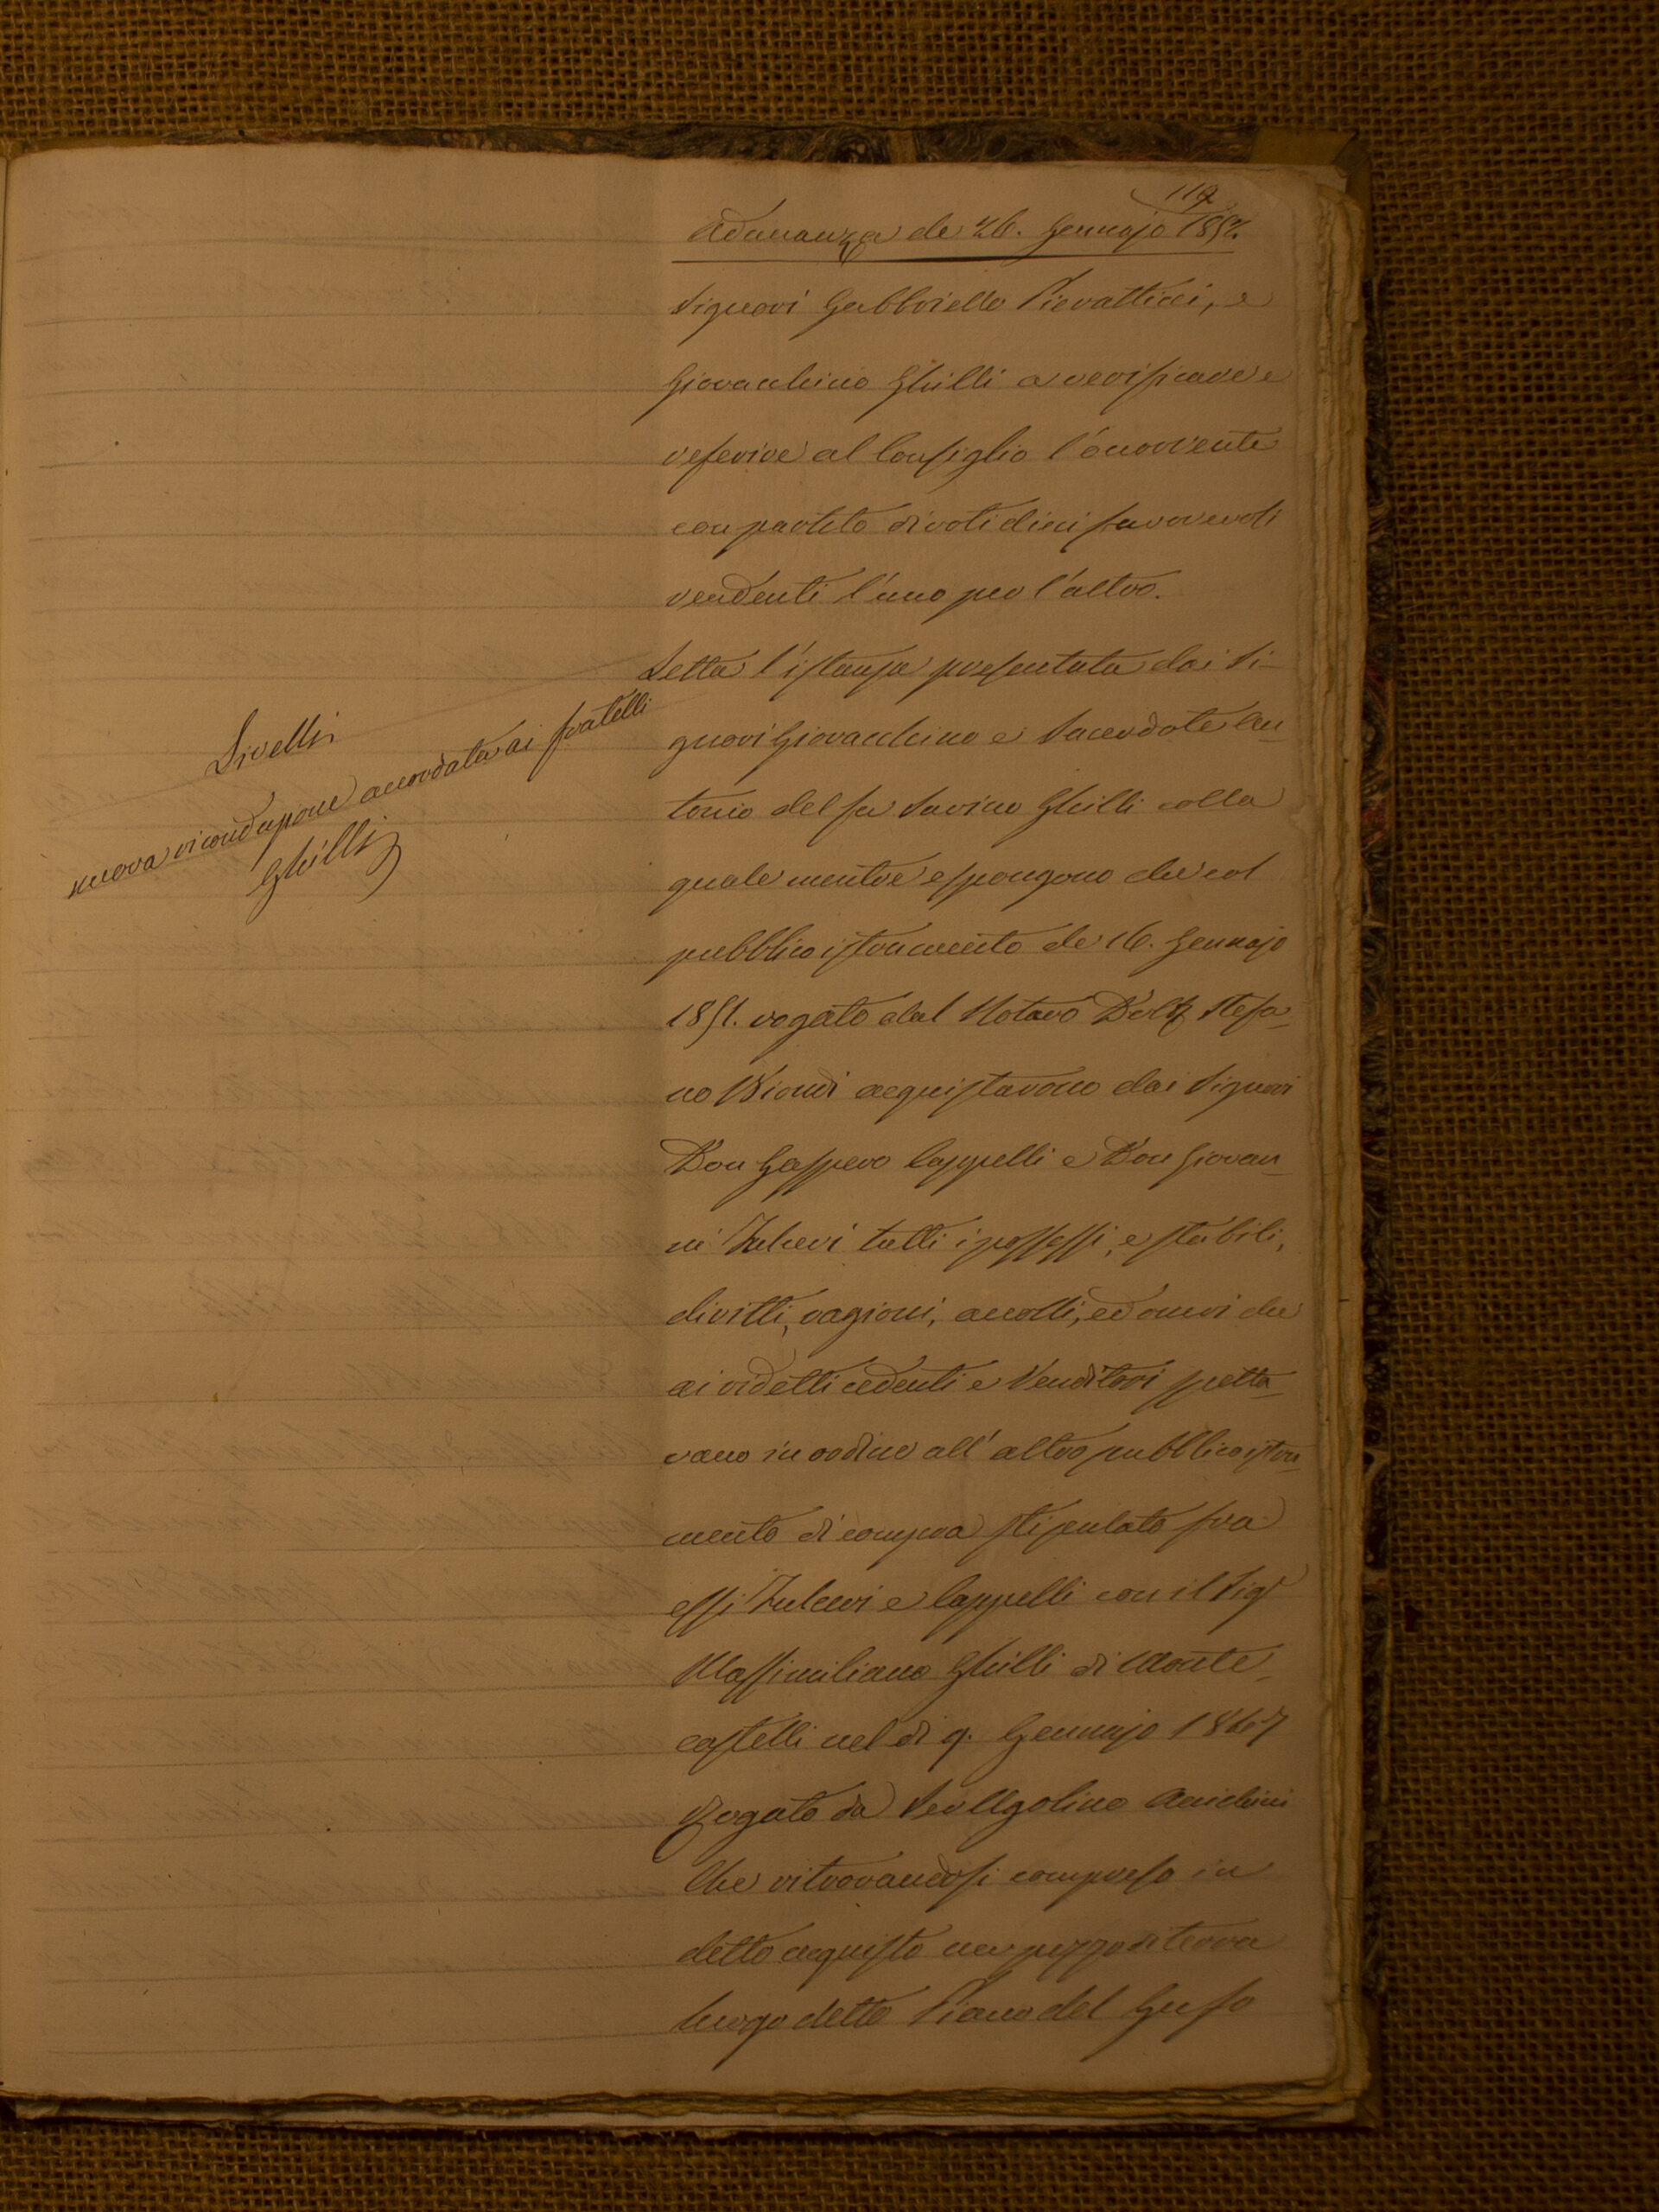 119
Adunanza de 26. Gennajo 1852.
Signori Gabbriello Pierattini, e
Giovacchino Ghilli a verificare e
referire al Consiglio l'occorrente
con partito di voti dieci favorevoli
rendenti l'uno per l'altro.
Letta l'istanza presentata dai Si-
gnori Giovacchino e Sacerdote An-
tonio del fu Savino Ghilli colla
quale mentre espongono che col
pubblico istrumento de 16. Gennajo
1851. rogato dal Notaro Dott. Stefa-
no Biondi acquistarono dai Signori
Don Gaspero Cappelli e Don Giovan-
ni Fulceri tutti i possessi, e stabili,
diritti, ragioni, accolli, ed oneri che
ai ridetti cedenti e Venditori spetta-
vano in ordine all' altro pubblico istru-
mento di compra stipulato fra
essi Fulceri e Cappelli con il Sigr
Massimiliano Ghilli di Monte-
castelli nel dì 9. Gennajo 1847
Rogato da Ser Ugolino Anichini
Che ritrovandosi compreso in
detto acquisto un pezzo di terra
luogo detto Piano del Gufo
Livelli
nuova riconduzione accordata ai fratelli
Ghilli